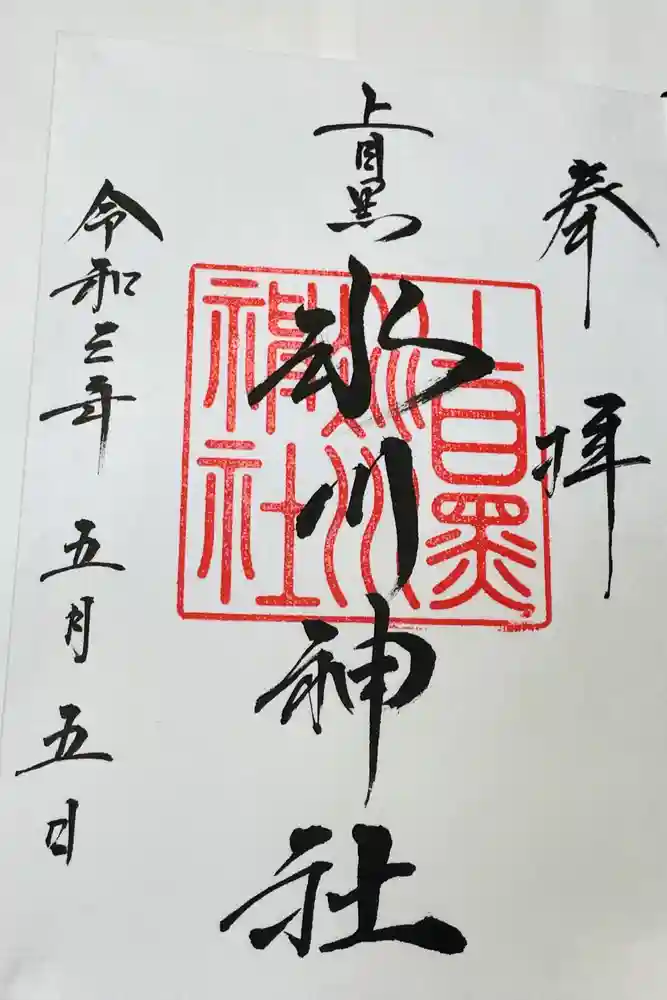 奉拝
上目黒氷川神社
上目黒氷川神社
令和三年五月五日